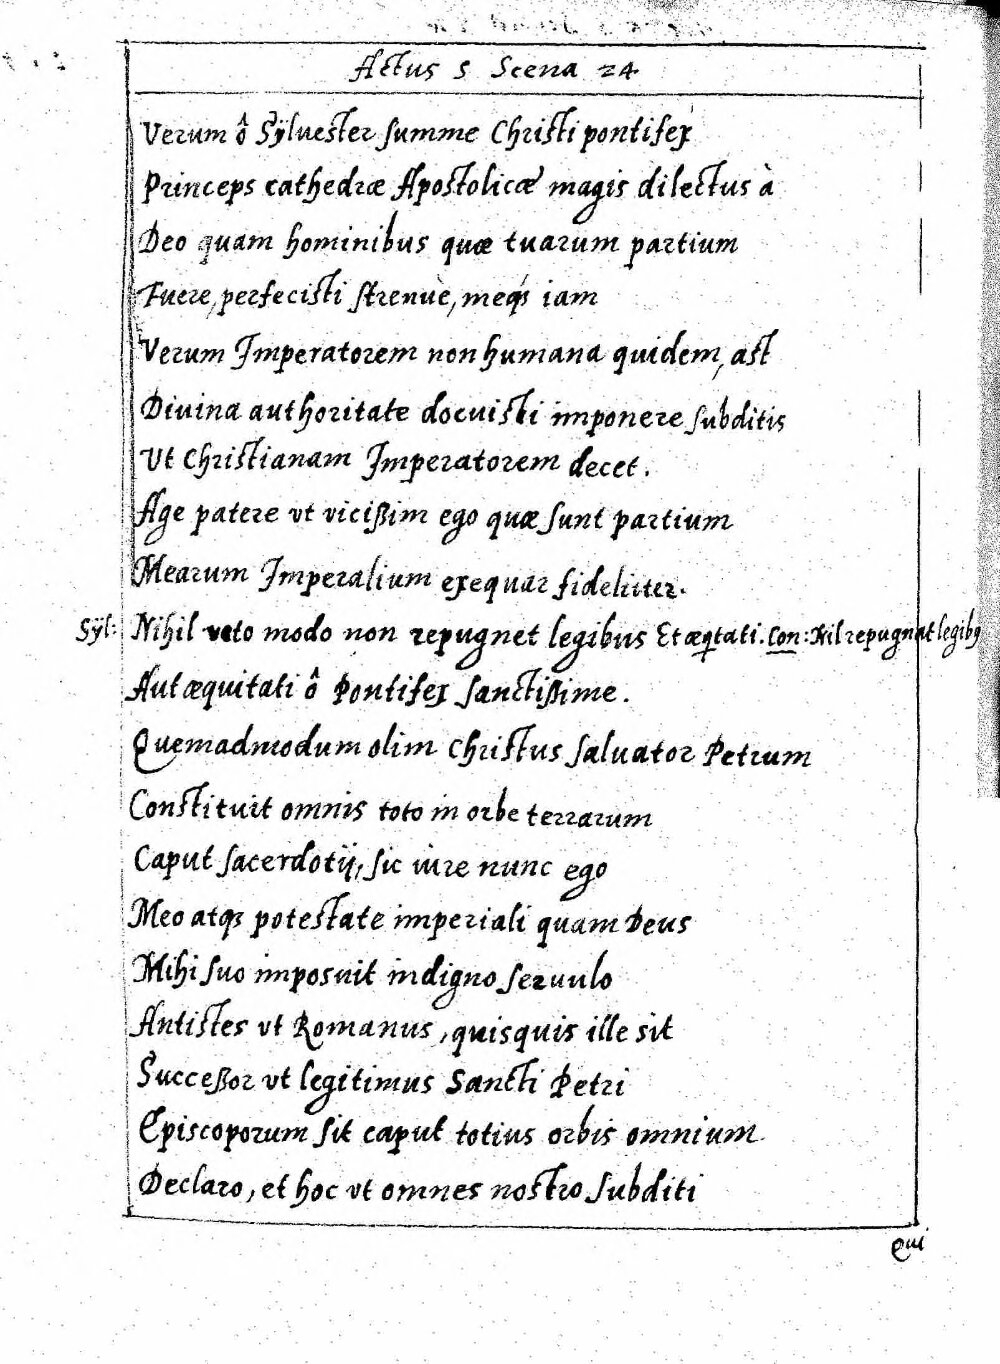 Actus 5 Scena 24
Verum ô Sÿluester summe Christi pontifex
Princeps cathedræ Apostolicæ magis dilectus à
Deo quam hominibus quæ tuarum partium
Fuere, perfecisti strenuè, meq́3 iam
Verum Imperatorem non humana quidem, ast
Diuina authoritate docuisti imponere subditis
Ut Christianam Imperatorem decet.
Age patere vt vicißim ego quæ sunt partium
Mearum Imperalium exequar fideliter.
Sÿl: Nihil veto modo non repugnet legibus Et æq̃tati. Con: Nil repugnat legibꝯ
Aut æquitati ô Pontifex sanctißime.
Quemadmodum olim Christus saluator Petrum
Constituit omnis toto in orbe terrarum
Caput sacerdotij, sic iure nunc ego
Meo atq3 potestate imperiali quam Deus
Mihi suo imposuit indigno seruulo
Antistes vt Romanus, quisquis ille sit
Succeßor vt legitimus Sancti Petri
Episcoporum sit caput totius orbis omnium
Declaro, et hoc vt omnes nostro subditi
Qui